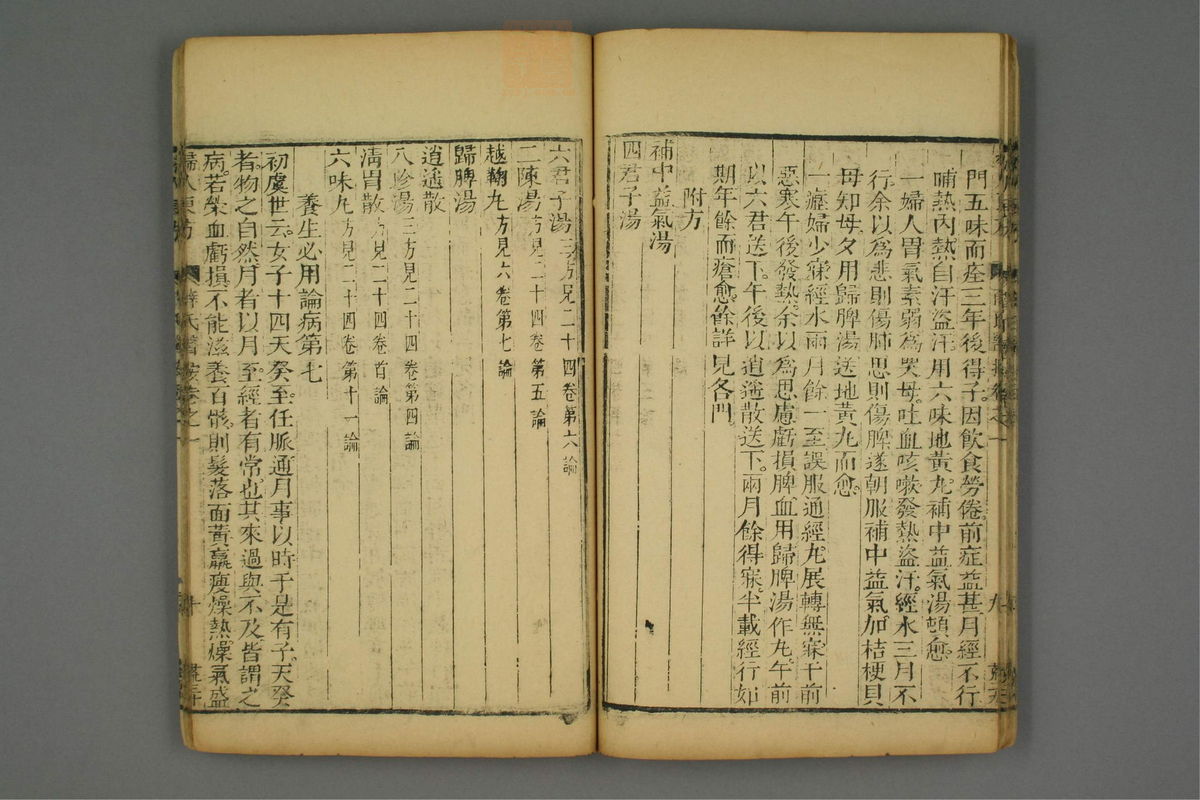 門五味而痊三年後得子因飲食勞倦前症益甚月經不行
晡熱內熱自汗盜汗用六味地黃丸補中益氣湯頓愈
一婦人胃氣素弱為哭母吐血咳嗽發熱盜汗經水三月不
行余以為悲則傷肺思則傷脾遂朝服補中益氣加桔梗貝
母知母夕用歸脾湯送地黃丸而愈
一癦婦少寐經水兩月餘一至誤服通經丸展轉無寐午前
惡寒午後發熱余以為思慮虧損脾血用歸脾湯作丸午前
以六君送下午後以逍遙散送下兩月餘得寐半載經行如
期年餘而瘡愈餘詳見各門
附方
補中益氣湯
四君子湯
六君子湯三方見二十四卷第六論
二陳湯方見二十四卷第五論
越鞠丸方見六卷第七論
歸脾湯
逍遙散
八珍湯三方見二十四卷第四論
清胃散方見二十四卷首論
六味丸方見二十四卷第十一論
養生必用論病第七
初虞世云女子十四天癸至任脈通月事以時于是有子天癸
者物之自然月者以月至經者有常也其來過與不及皆謂之
病若榮血虧損不能滋養百骸則髮落面黃羸瘦燥熱燥氣盛
婦人良方 薛氏醫按卷之一 十